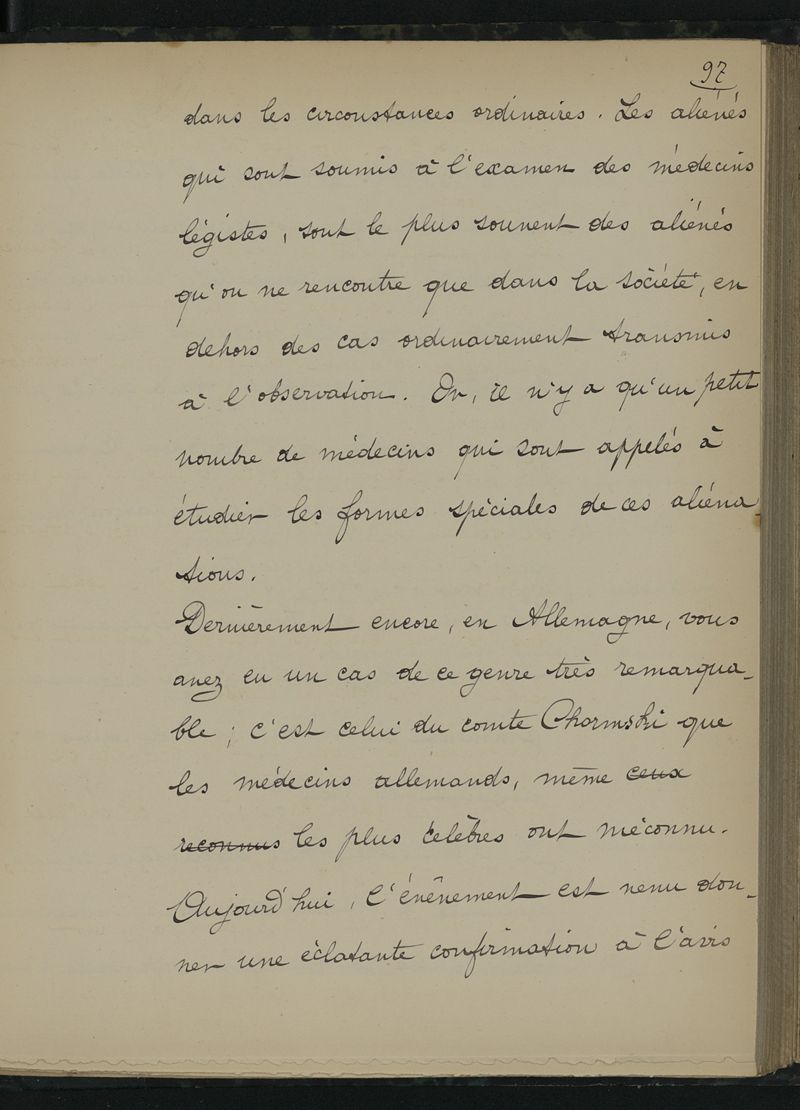 97
dans les circonstances ordinaires. Les aliénés
qui sont soumis à l'examen des médecins
légistes, sont le plus souvent des aliénés
qu'on ne rencontre que dans la société, en
dehors des cas ordinairement transmis
à l'observation. Or, il n'y a qu'un petit
nombre de médecins qui sont appelés à
étudier les formes spéciales de ces aliéna-
tions.
Dernièrement encore, en Allemagne, vous
avez eu un cas de ce genre très remarqua-
ble; c'est celui du comte Chormski que
les médecins allemands, même ceux
reconnus les plus célèbres ont méconnu.
Aujourd'hui, l'évènement est venu don-
ner une éclatante confirmation à l'avis